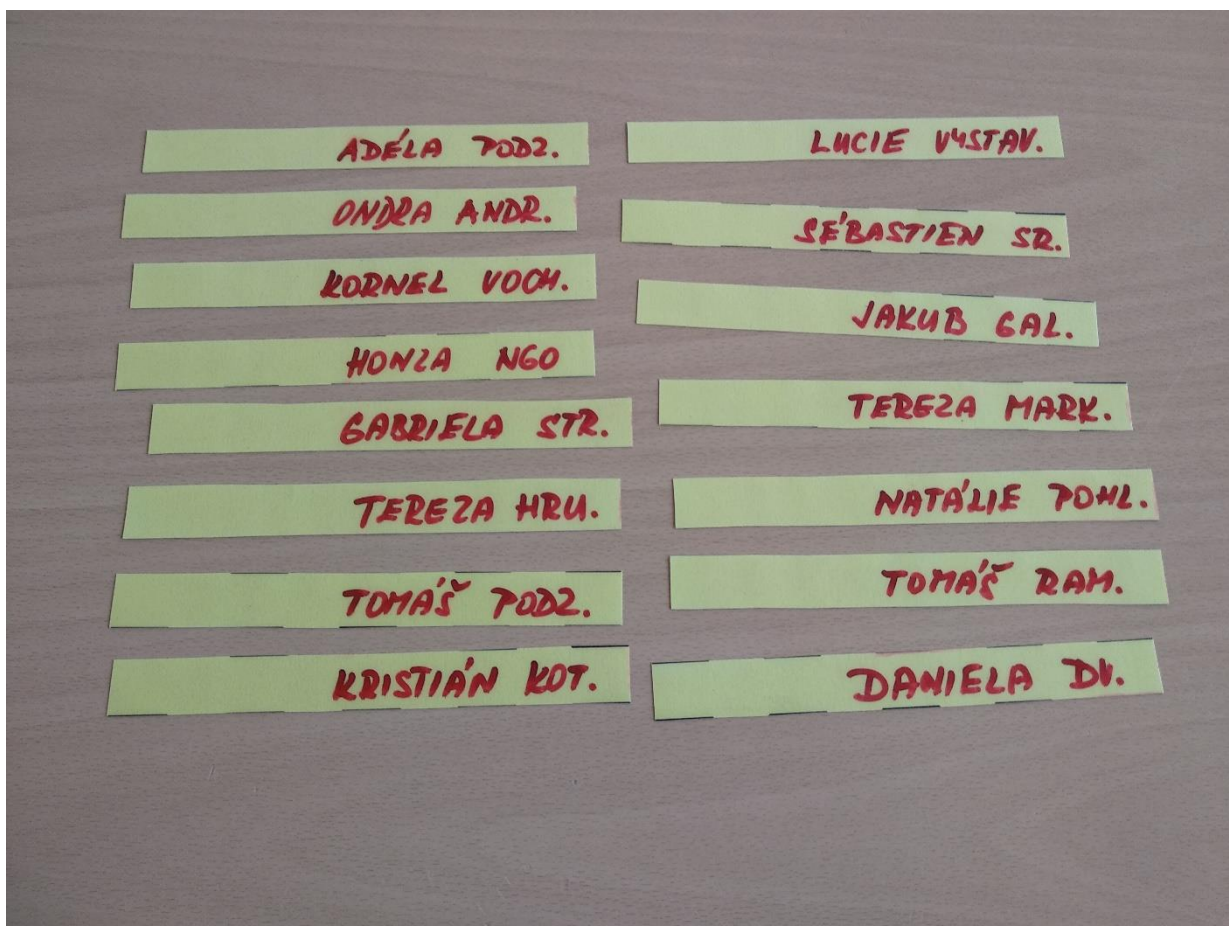 ADÉLA PODZ.
ONDRA ANDR.
KORNEL VOCH.
HONZA NGO
GABRIELA STR.
TEREZA HRU.
TOMÁŠ PODZ.
KRISTIÁN KOT.
LUCIE VYSTAV.
SÉBASTIEN SR.
JAKUB GAL.
TEREZA MARK.
NATÁLIE POHL.
TOMÁŠ RAM.
DANIELA DV.